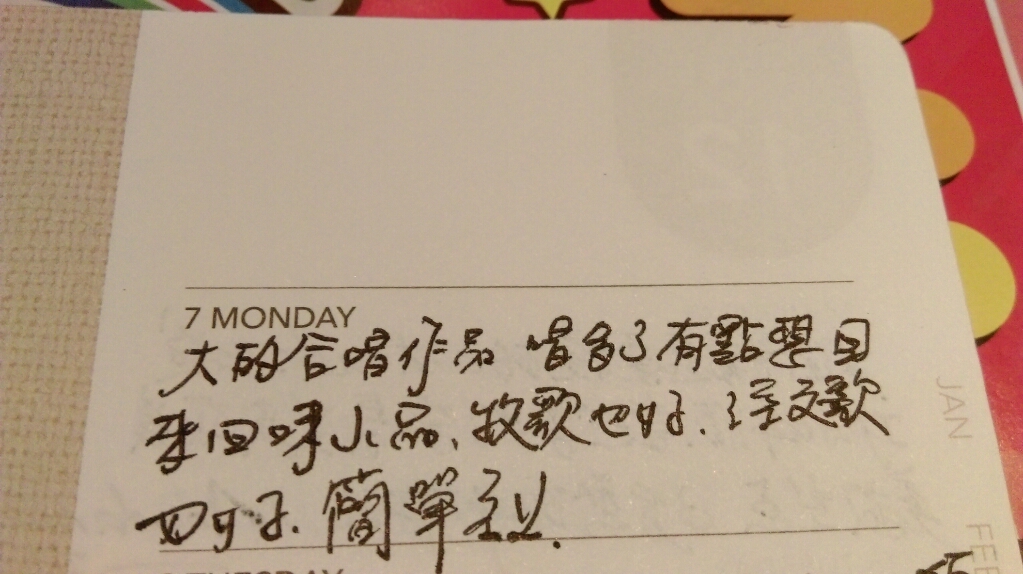 7 MONDAY
大的合唱作品 唱多了有點想回
來回味小品、牧歌也好、經文歌
也好、簡單
TUESDAY
JAN